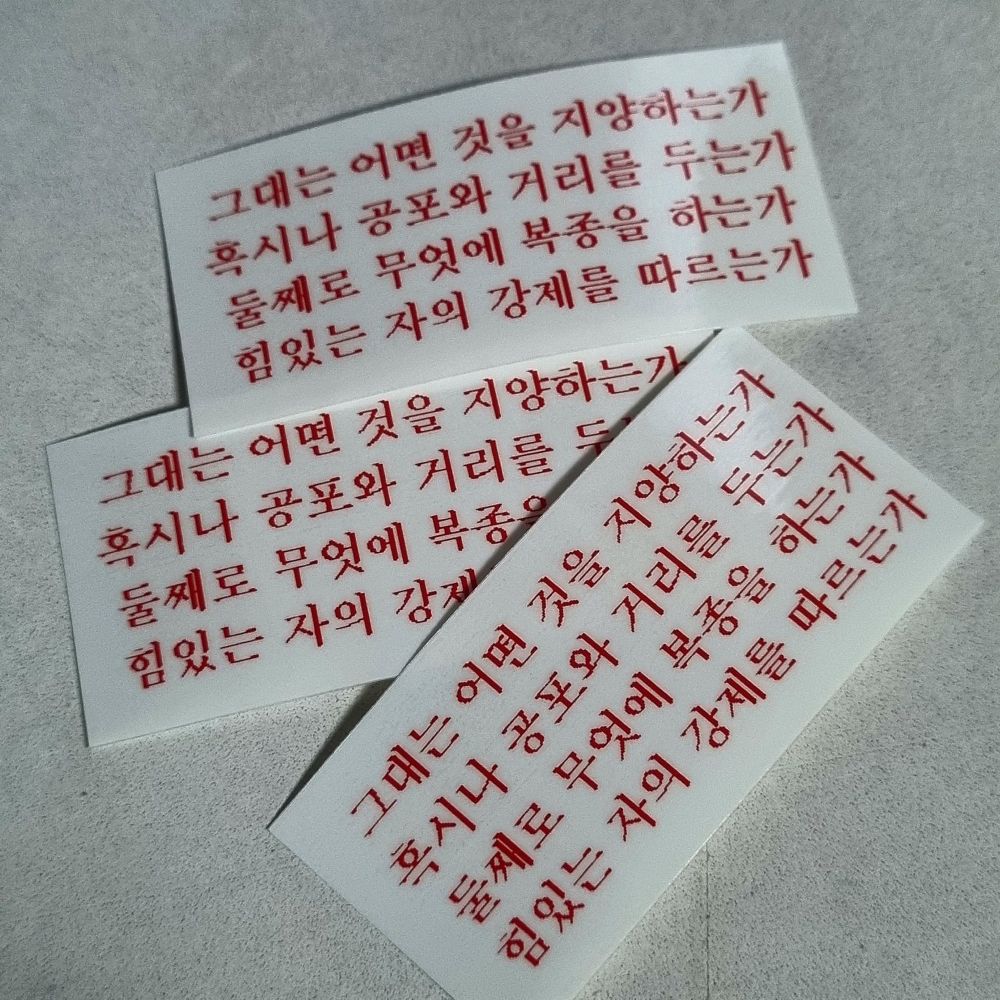 그대는 어떤 것을 지양하는가
혹시나 공포와 거리를 두는가
둘째로 무엇에 복종을 하는가
힘있는 자의 강제를 따르는가
그대는 어떤 것을 지양하는가
혹시나 공포와 거리를 두
둘째로 무엇에 복종을
힘있는 자의 강제
그대는 어떤 것을 지양하는가
혹시나 공포와 거리를 두는가
둘째로 무엇에 복종을 하는가
힘있는 자의 강제를 따르는가